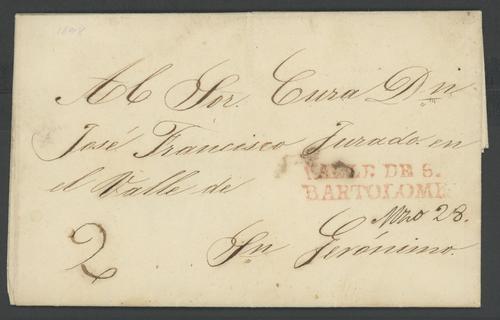 Al Sor. Cura Dn.
José Francisco Jurado. en
el Valle de
VALLE DE S.
BARTOLOME
Mzo 28.
2
Sn Gerónimo.